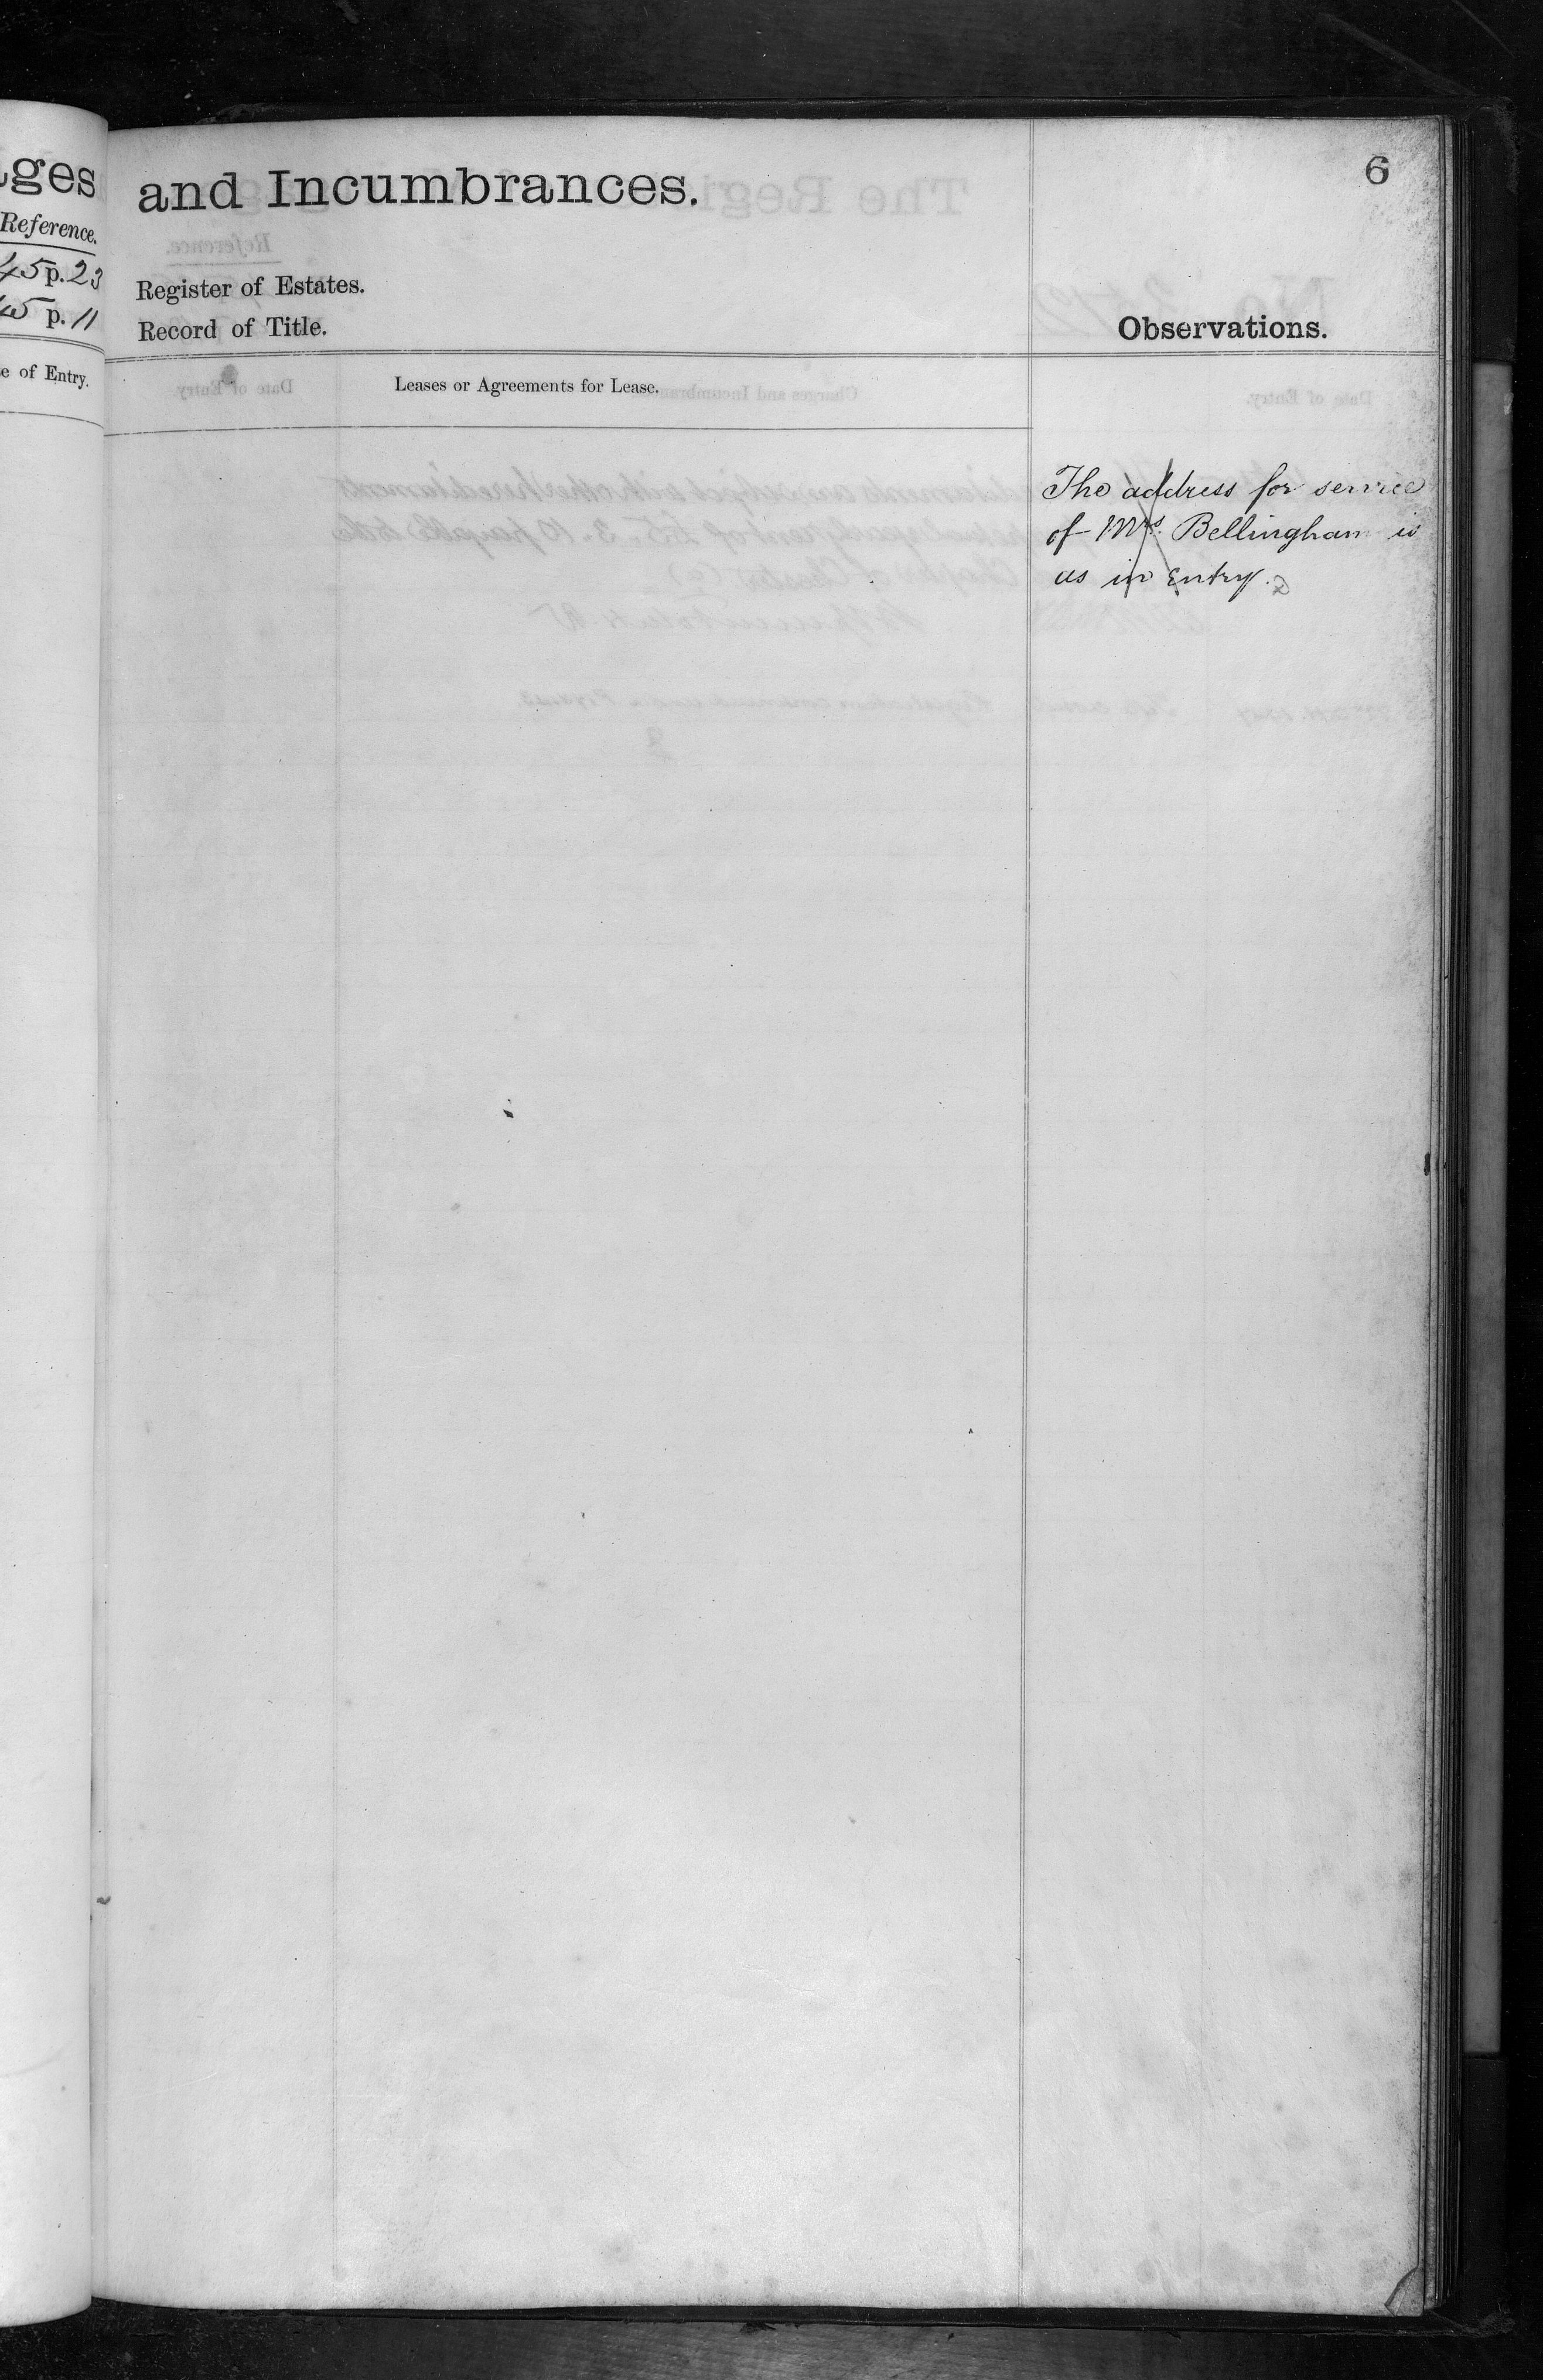 ges
Reference.
45 p. 23
45 p. 11
e of Entry.
and Incumbrances.
6
Register of Estates.
Record of Title.
Observations.
Leases or Agreements for Lease.
The address for service
of Mrs. Bellingham is
as in Entry.